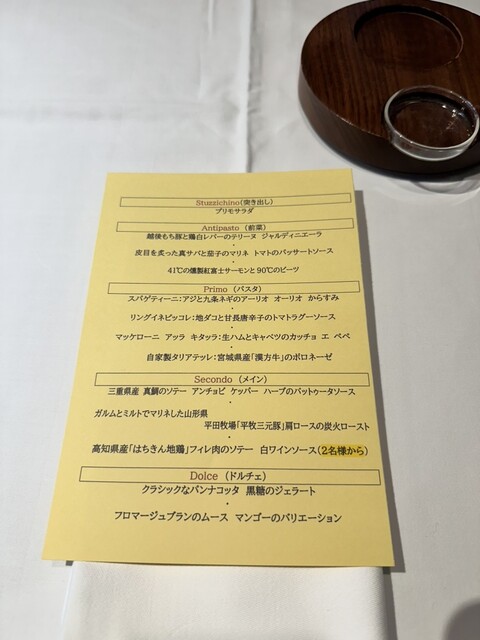 Stuzzichino(突き出し)
プリモサラダ
Antipasto （前菜）
越後もち豚と鶏白レバーのテリーヌ ジャルディニエーラ
・
皮目を炙った真サバと茄子のマリネ トマトのパッサートソース
・
41℃の燻製紅富士サーモンと90℃のビーツ
Primo （パスタ）
スパゲティーニ：アジと九条ネギのアーリオ オーリオ からすみ
・
リングイネピッコレ：地ダコと甘長唐辛子のトマトラグーソース
・
マッケローニ アッラ キタッラ：生ハムとキャベツのカッチョ エ ペペ
・
自家製タリアテッレ：宮城県産「漢方牛」のボロネーゼ
Secondo （メイン）
三重県産 真鯛のソテー アンチョビ ケッパー ハーブのバットゥータソース
・
ガルムとミルトでマリネした山形県
平田牧場「平牧三元豚」肩ロースの炭火ロースト
・
高知県産「はちきん地鶏」フィレ肉のソテー 白ワインソース（2名様から）
Dolce （ドルチェ）
クラシックなパンナコッタ 黒糖のジェラート
・
フロマージュブランのムース マンゴーのバリエーション